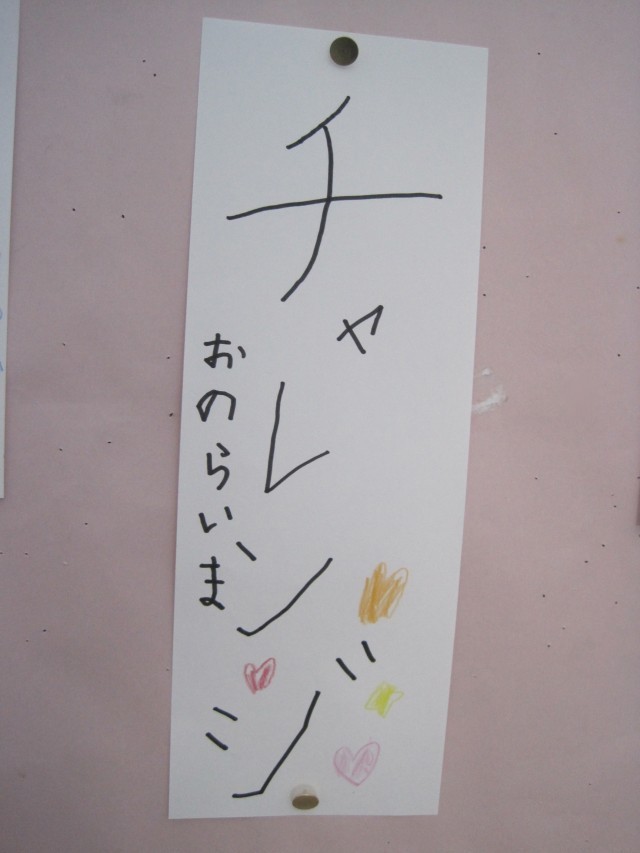 チャレンジ
おのらいま